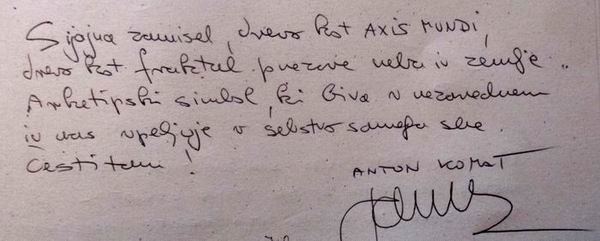 Sijajna zamisel, drevo kot AXIS MUNDI,
drevo kot fraktal poveže neba in zemlje ..
Arhetipski simbol, ki biva v nezavednem
in vas vpeljuje v sebstvo samega sebe.
Čestitam!
ANTON KOMAT